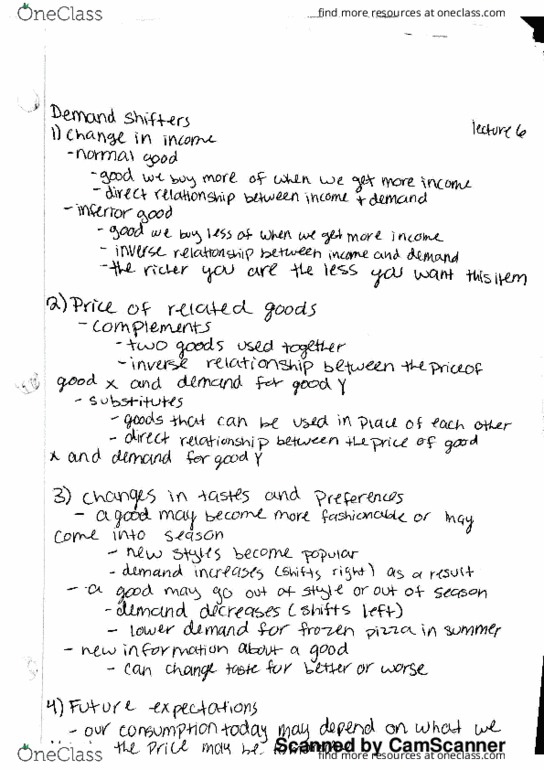 OneClass
find more resources at oneclass.com
Demand Shifters
lecture 6
1) change in income
- normal good
- good we buy more of when we get more income
- direct relationship between income + demand
- inferior good
- good we buy less of when we get more income
- inverse relationship between income and demand
- the richer you are the less you want this item
2) Price of related goods
- complements
- two goods used together
- inverse relationship between the price of
good x and demand for good Y
- substitutes
- goods that can be used in place of each other
- direct relationship between the price of good
x and demand for good Y
3) changes in tastes and preferences
- a good may become more fashionable or may
come into season
- new styles become popular
- demand increases (shifts right) as a result
- a good may go out of style or out of season
- demand decreases (shifts left)
- lower demand for frozen pizza in summer
- new information about a good
- can change taste for better or worse
4) Future expectations
- our consumption today may depend on what we
the price may be
Scanned by CamScanner
OneClass
find more resources at oneclass.com